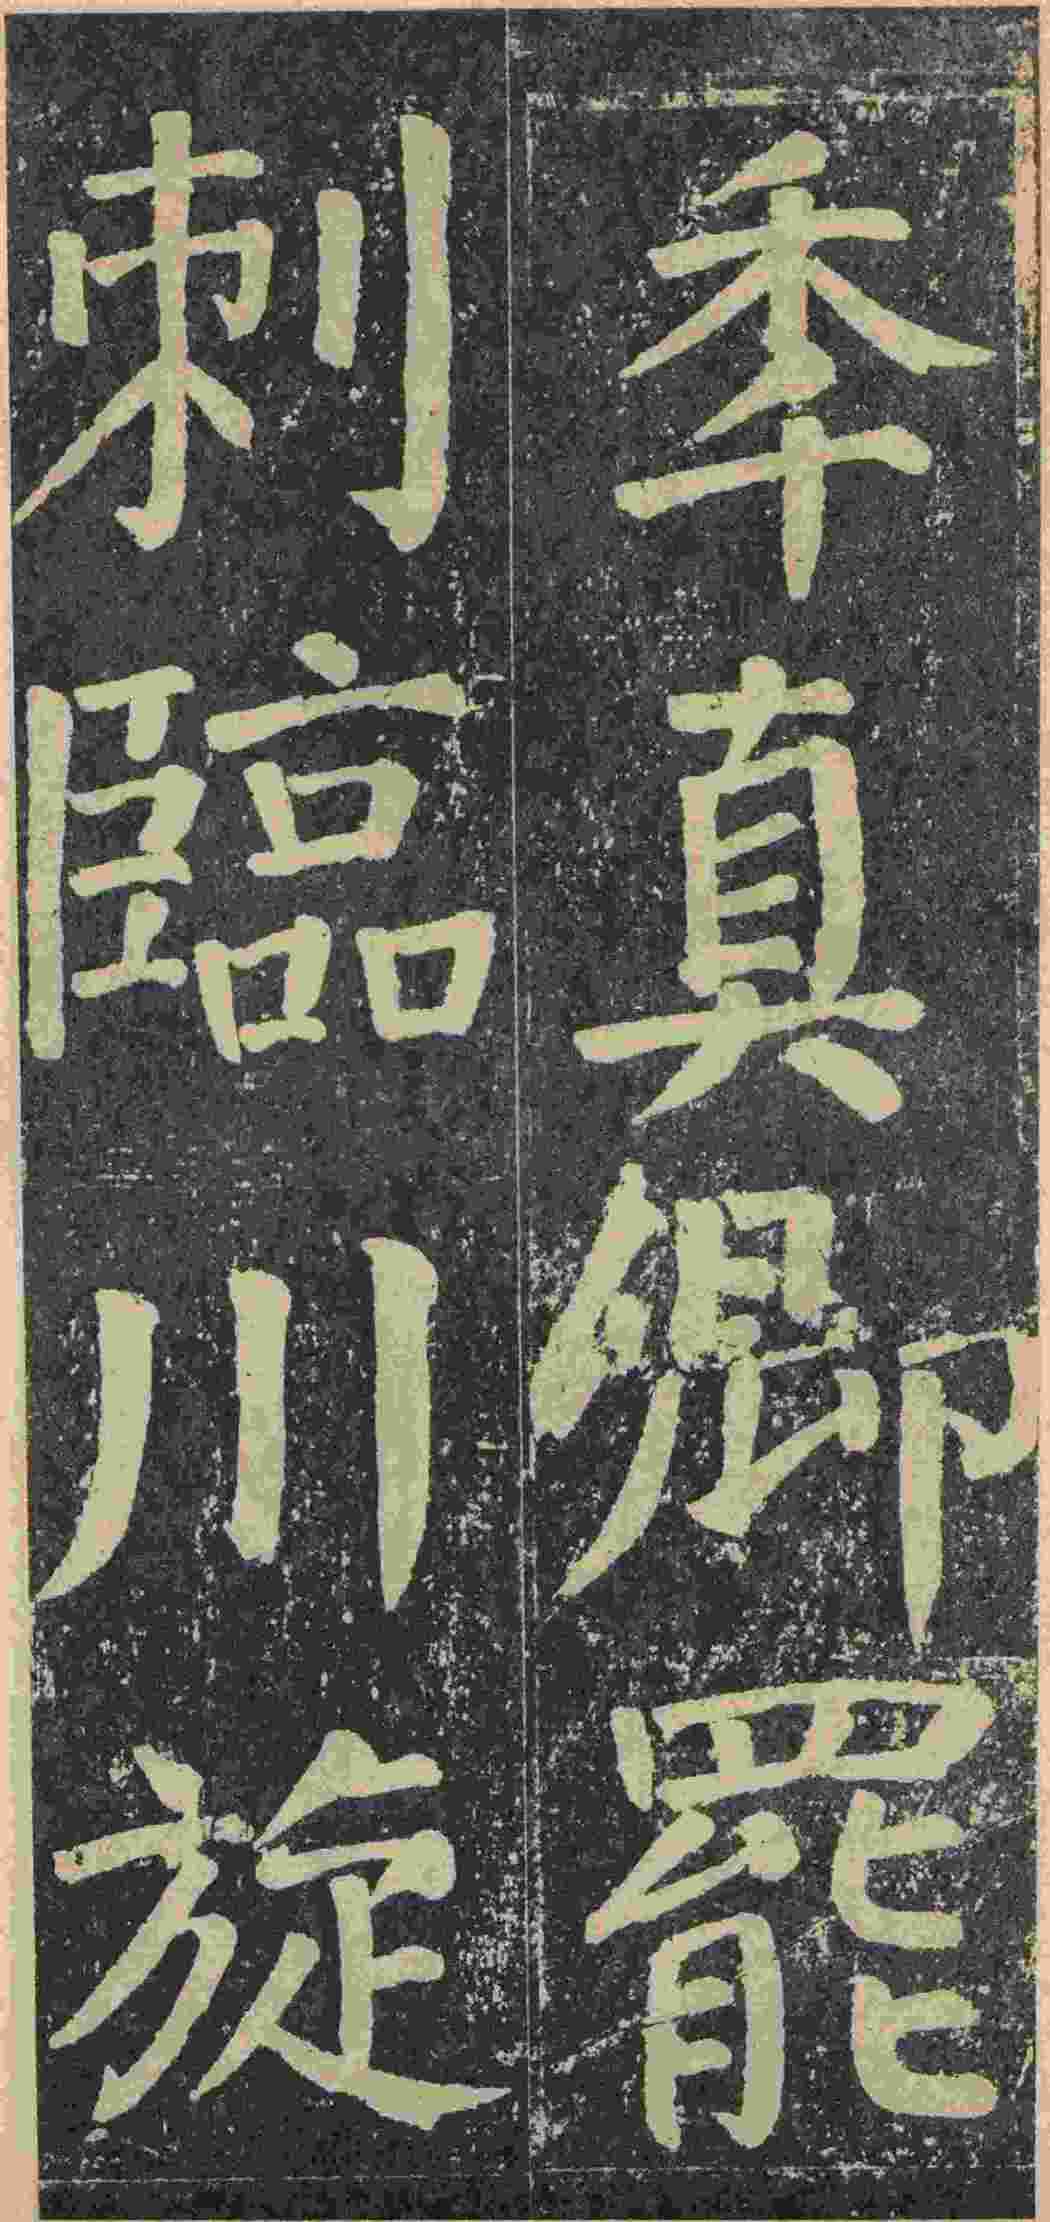 年真卿罷
刺臨川旋